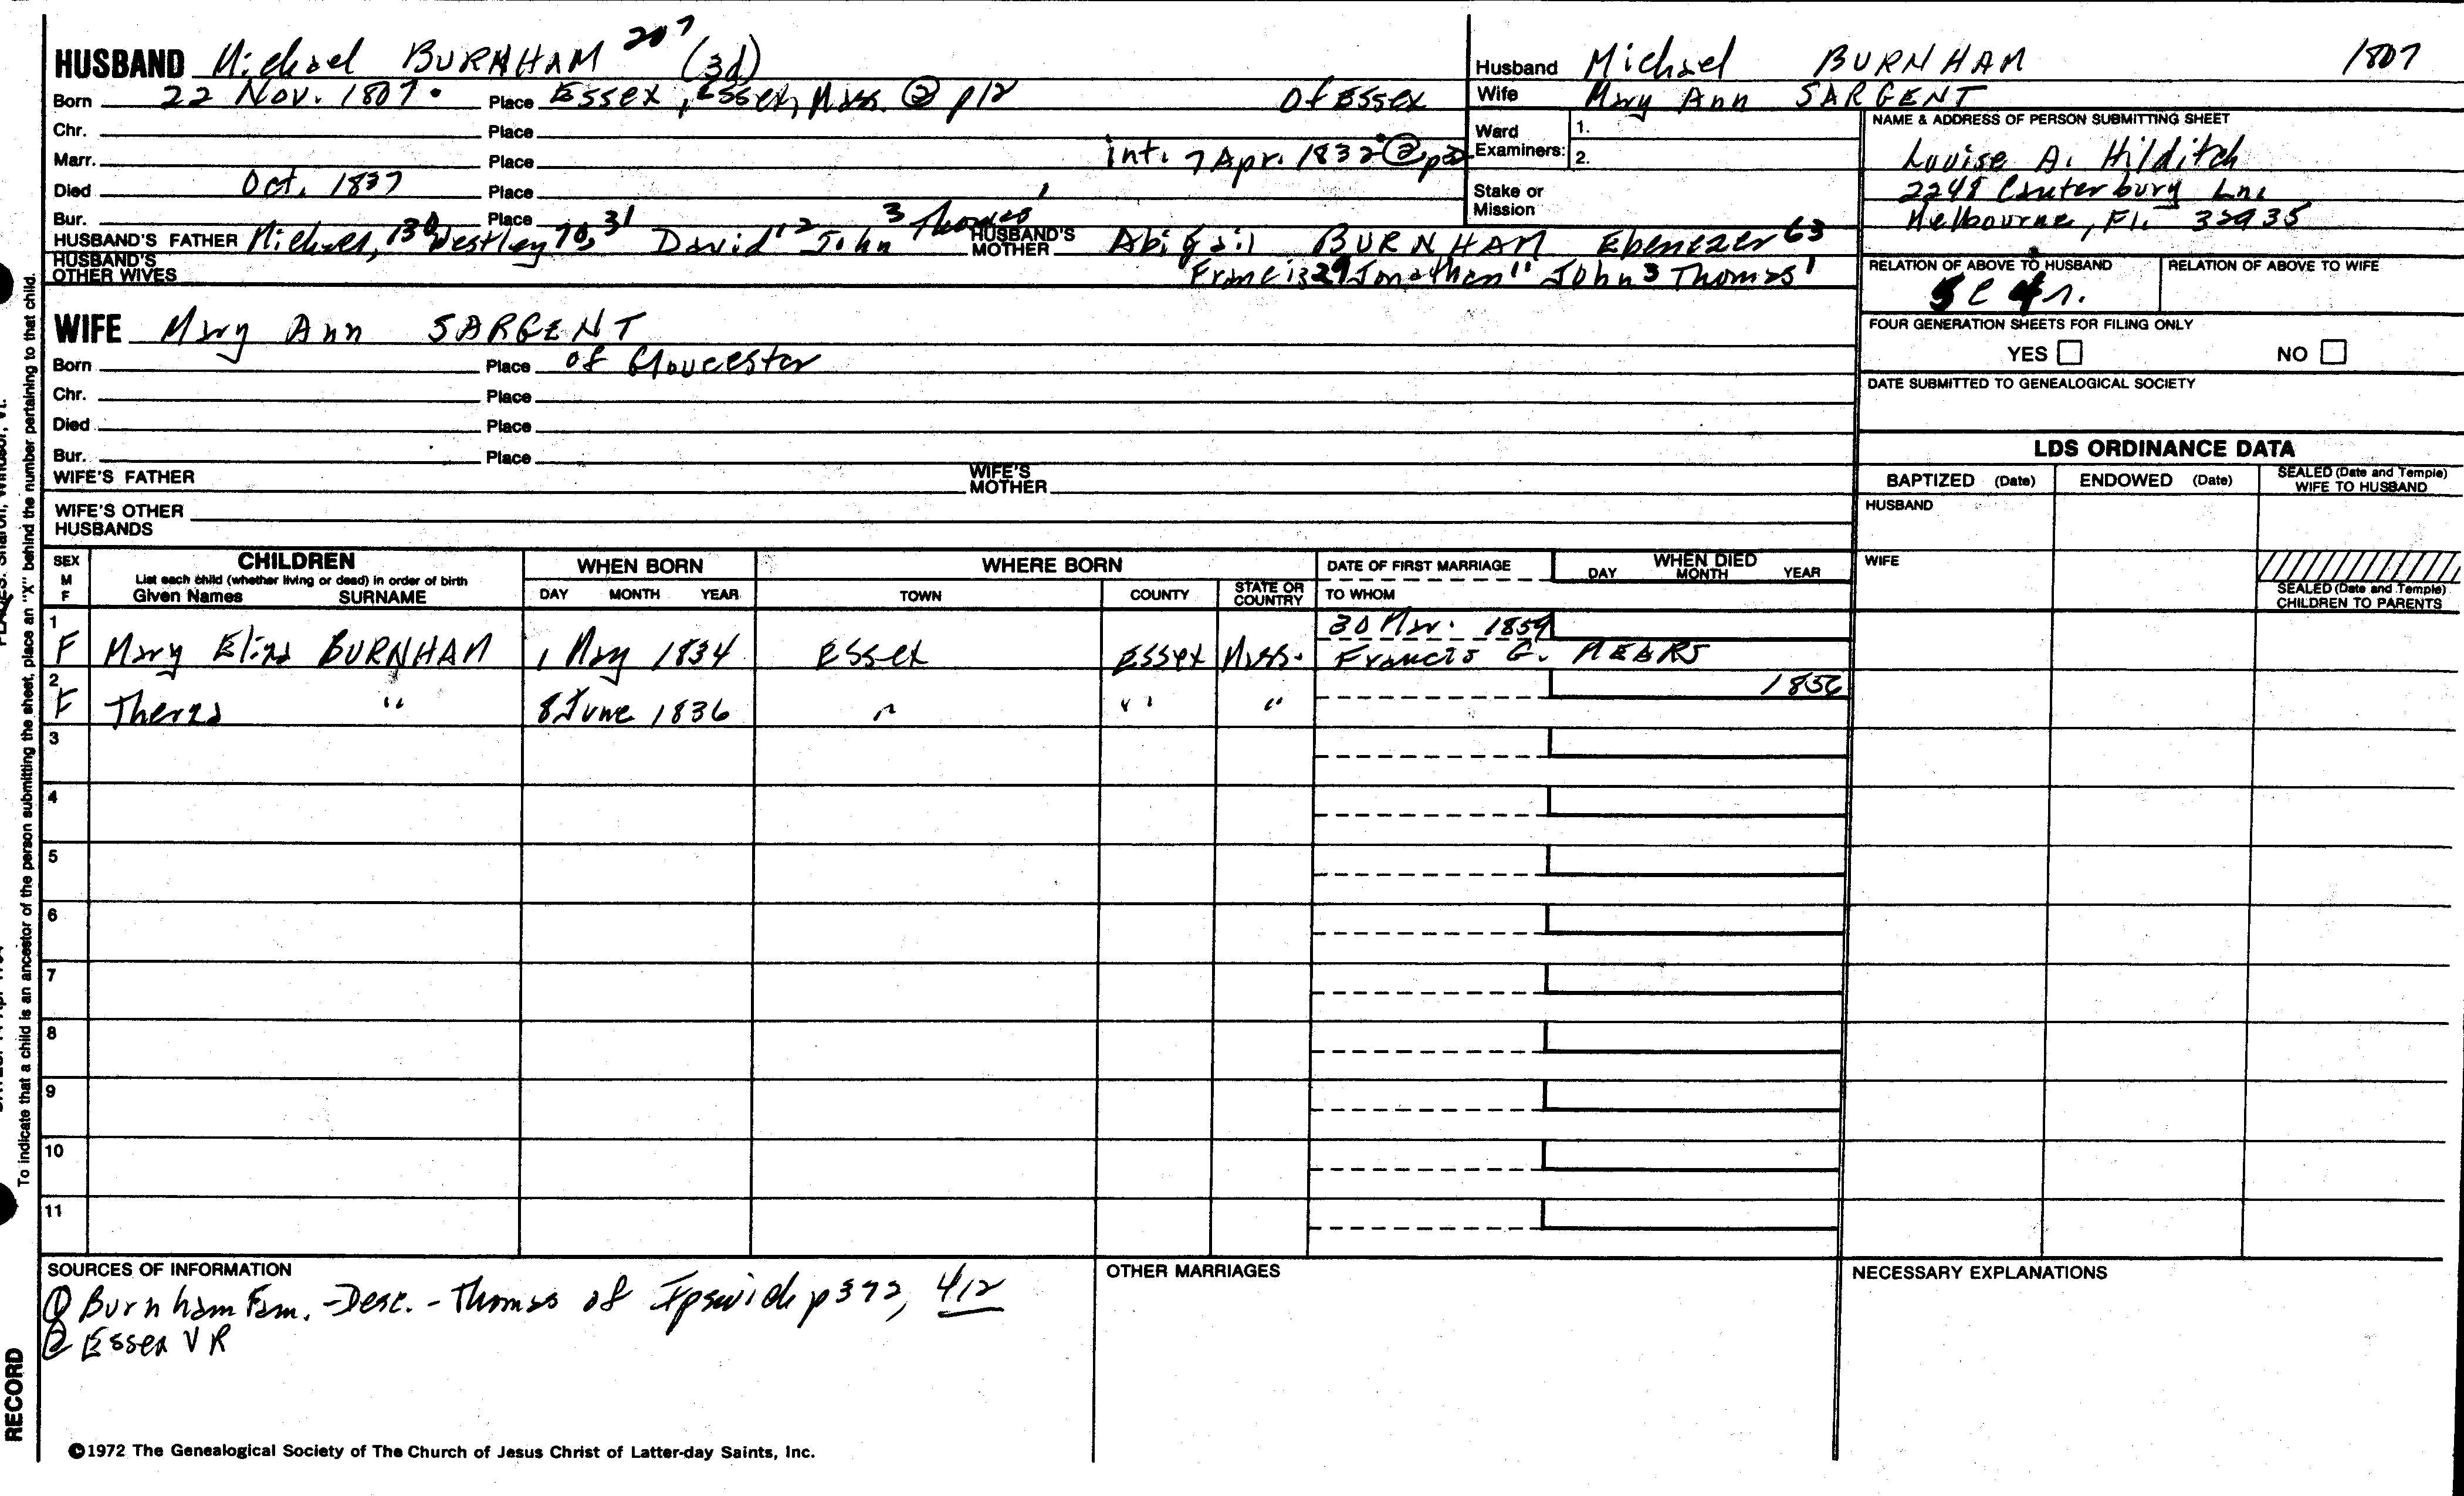 HUSBAND Michael BURNHAM 207 (3d)
Born 22 Nov. 1807. Place Essex, Essex, Mass. @ p12 of Essex
Chr. Place
Marr. Place int. 7 Apr. 1832 @
Died Oct. 1837 Place
Bur. Place
HUSBAND'S FATHER Michael, 130 Westley 70, 31 David 12 John 3 Thomas 1 HUSBAND'S MOTHER Abigail BURNHAM Ebenezer 63
HUSBAND'S OTHER WIVES Francis 29 Jonathan 11 John 3 Thomas 1
WIFE Mary Ann SARGENT
Born Place of Gloucester
Chr. Place
Died Place
Bur. Place
WIFE'S FATHER WIFE'S MOTHER
WIFE'S OTHER HUSBANDS
Husband Michael BURNHAM 1807
Wife Mary Ann SARGENT
Ward Examiners: 1. 2.
Stake or Mission
NAME & ADDRESS OF PERSON SUBMITTING SHEET
Louise A. Hilditch
2248 Canterbury Lne
Melbourne, Fl. 32935
RELATION OF ABOVE TO HUSBAND RELATION OF ABOVE TO WIFE
FOUR GENERATION SHEETS FOR FILING ONLY
YES NO
DATE SUBMITTED TO GENEALOGICAL SOCIETY
LDS ORDINANCE DATA
BAPTIZED (Date) ENDOWED (Date) SEALED (Date and Temple) WIFE TO HUSBAND
HUSBAND
WIFE
SEALED (Date and Temple) CHILDREN TO PARENTS
SEX M F
CHILDREN
List each child (whether living or dead) in order of birth
Given Names SURNAME
WHEN BORN
DAY MONTH YEAR
WHERE BORN
TOWN COUNTY STATE OR COUNTRY
DATE OF FIRST MARRIAGE
TO WHOM
WHEN DIED
DAY MONTH YEAR
1 30 Mar. 1859
F Mary Eliza BURNHAM 1 May 1834 Essex Essex Mass. Francis G. MEARS
2 1856
F Thersa " 8 June 1836 " " "
3
4
5
6
7
8
9
10
11
SOURCES OF INFORMATION
① Burnham Fam. - Desc. - Thomas of Ipswich p 372, 412
② Essex V R
OTHER MARRIAGES
NECESSARY EXPLANATIONS
©1972 The Genealogical Society of The Church of Jesus Christ of Latter-day Saints, Inc.
To indicate that a child is an ancestor of the person submitting the sheet, place an "X" behind the number pertaining to that child.
RECORD